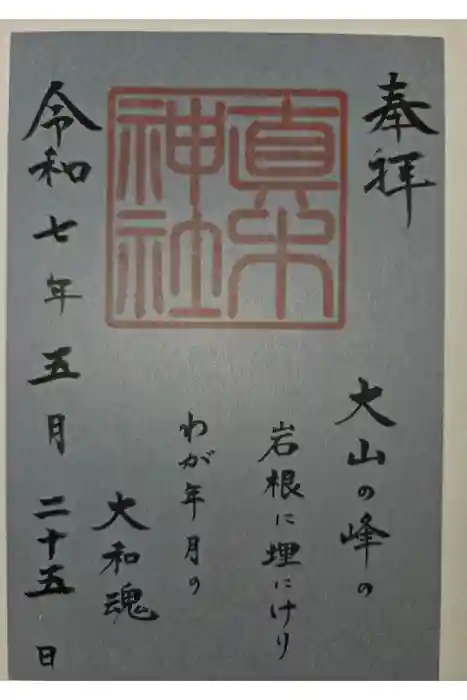 奉拝
大山の峰の
岩根に埋にけり
わが年月の
大和魂
真木神社
令和七年五月二十五日